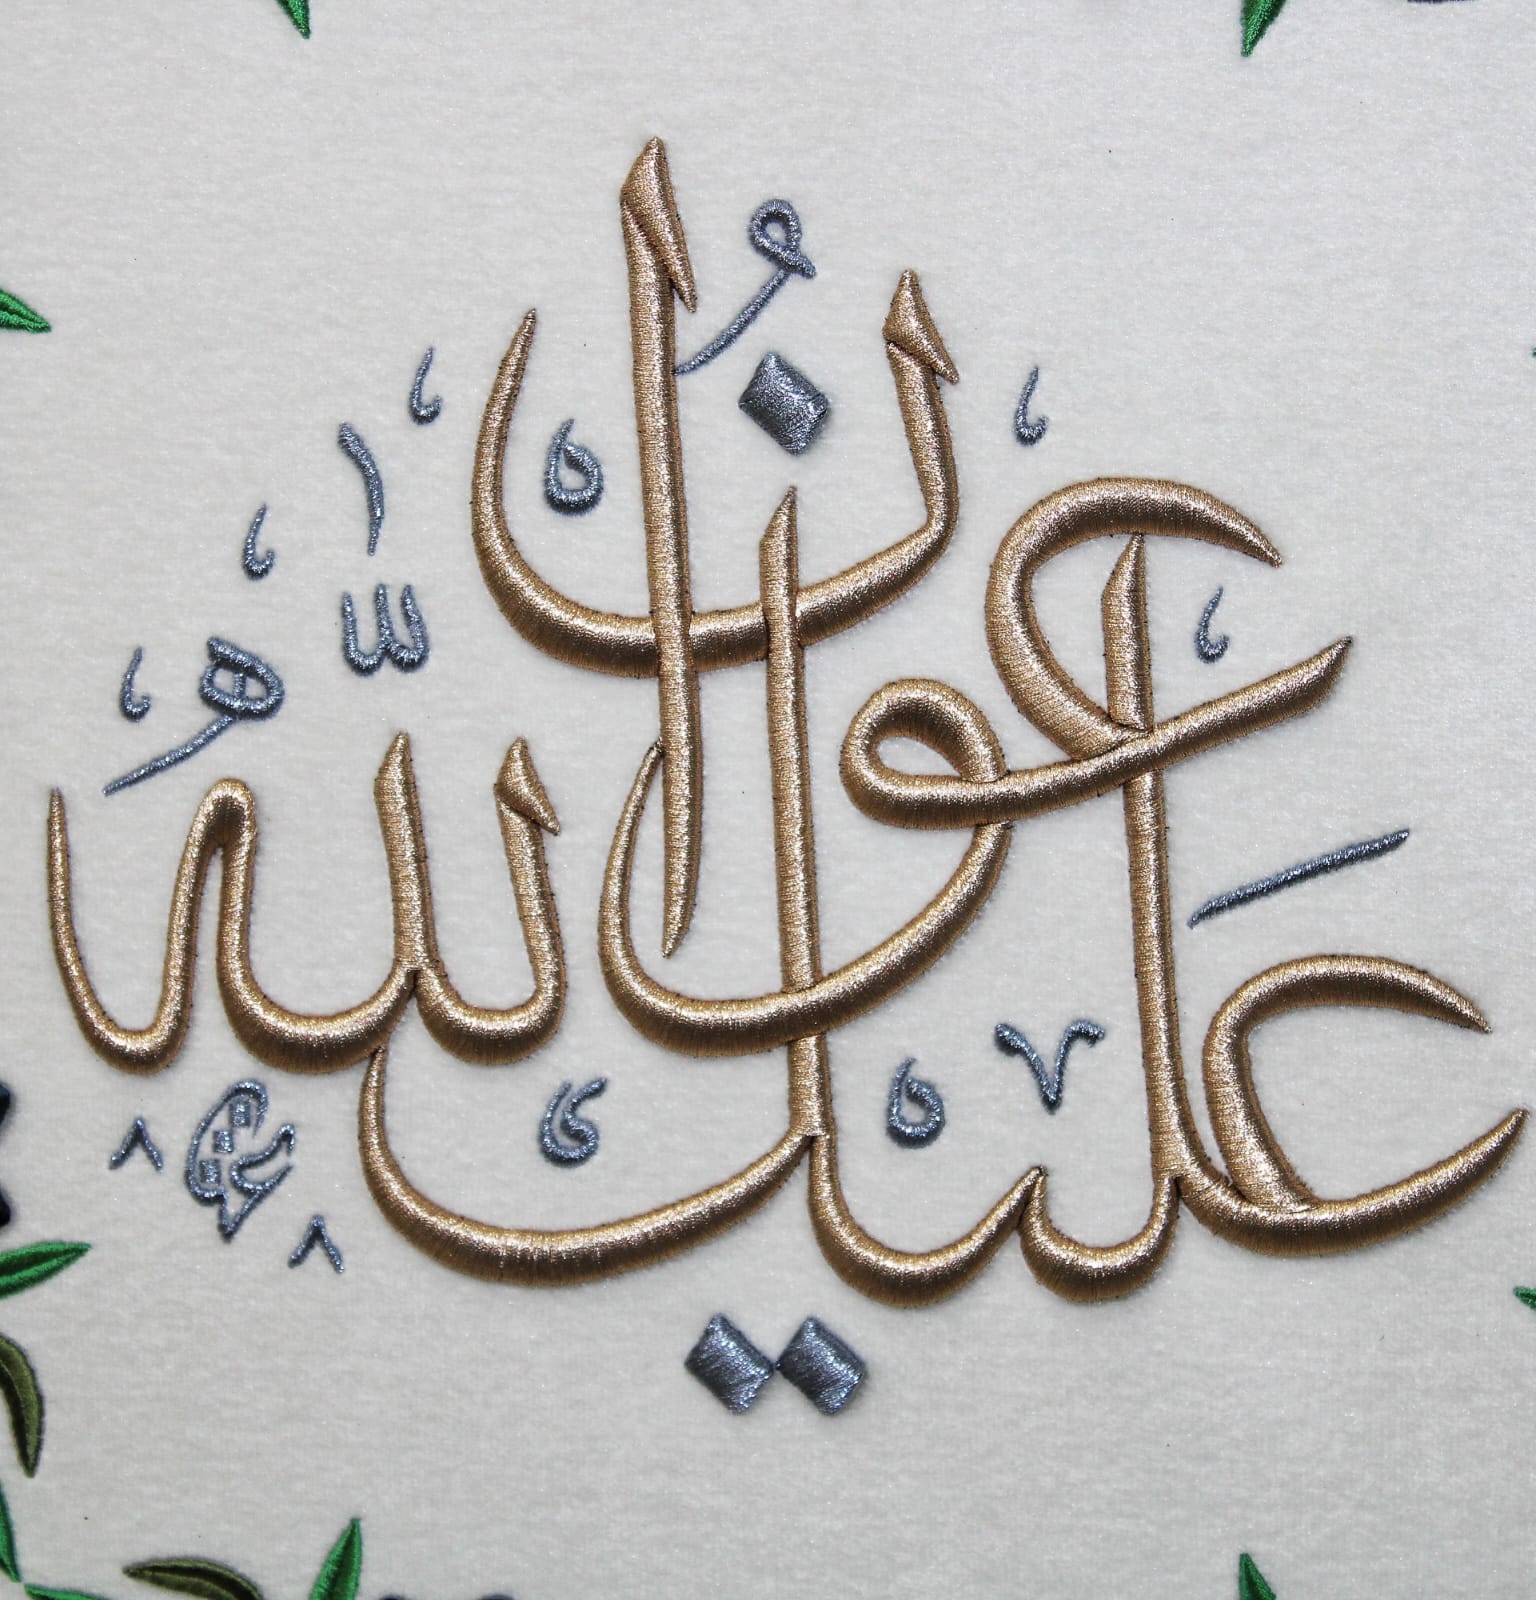 عليك عون الله